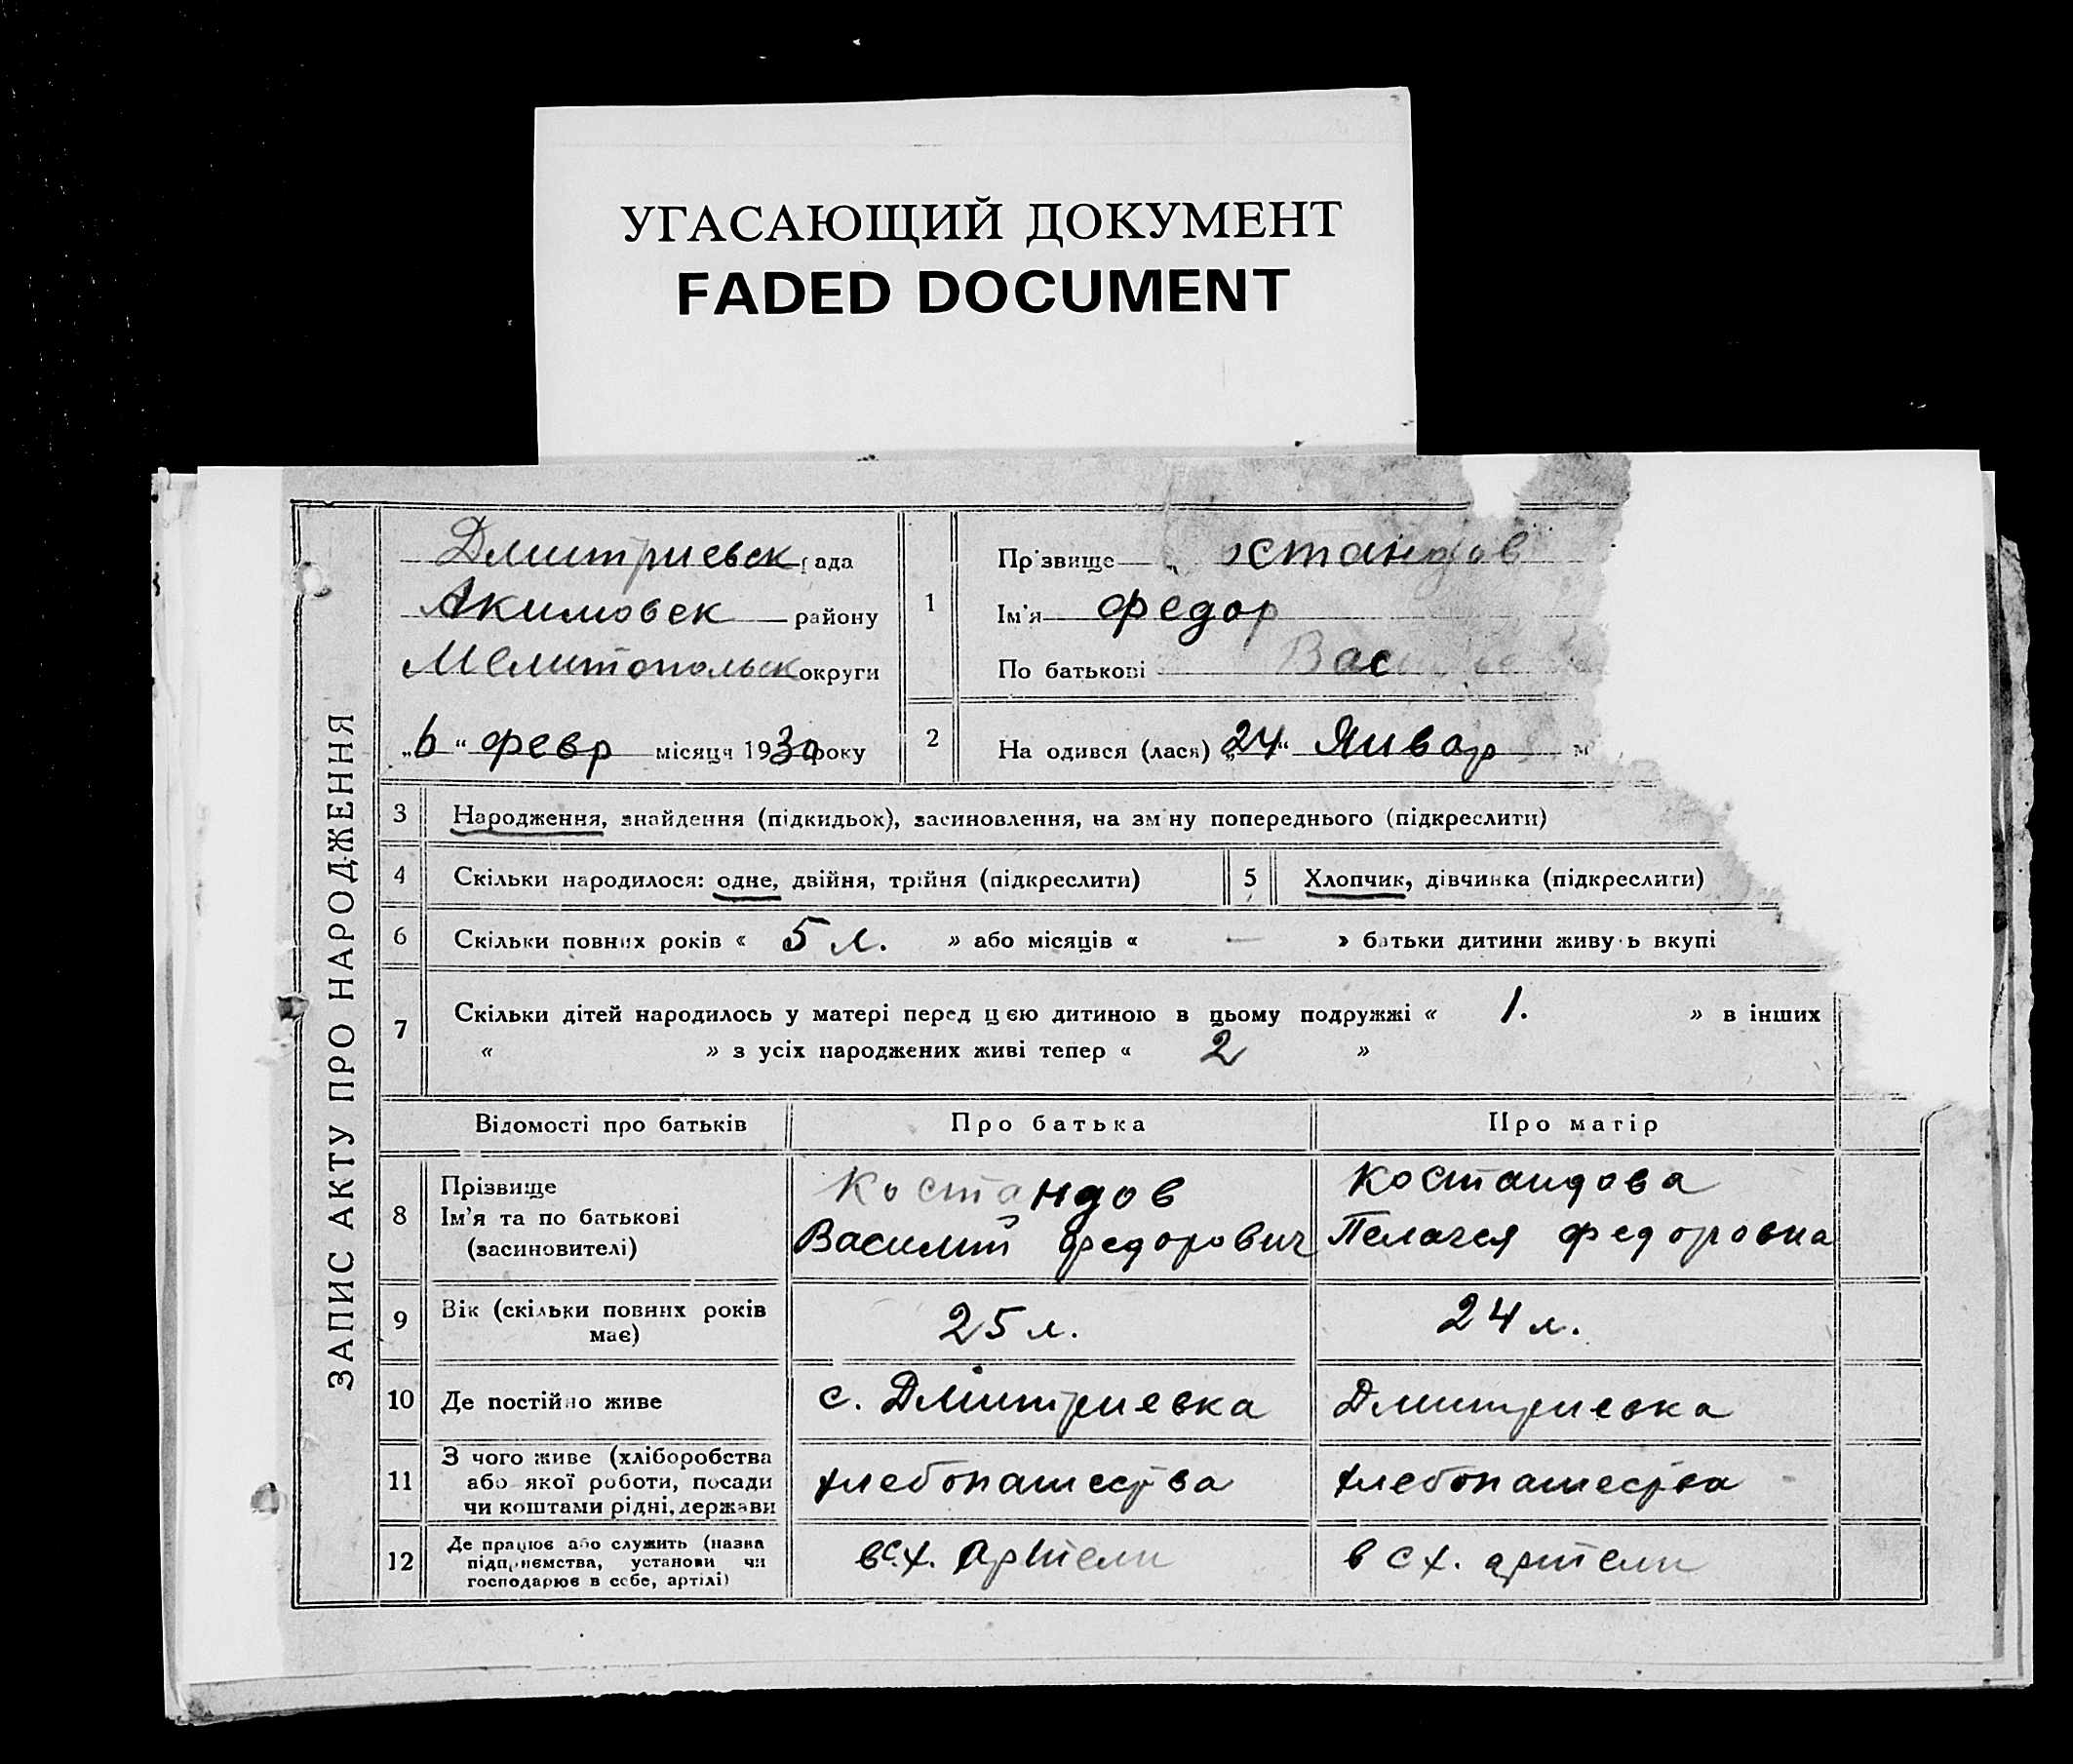 УГАСАЮЩИЙ ДОКУМЕНТ
FADED DOCUMENT
ЗАПИС АКТУ ПРО НАРОДЖЕННЯ
Дмитриевск рада
Акимовск району
Мелитопольск округи
„6“ февр місяця 1930 року
1
Прізвище остандов
Ім'я Федор
По батькові Вас
2 На одився (лася) „24“ Январ м
3 Народження, знайдення (підкидьок), засиновлення, на зміну попереднього (підкреслити)
4 Скільки народилося: одне, двійня, трійня (підкреслити)
5 Хлопчик, дівчинка (підкреслити)
6 Скільки повних років « 5 л. » або місяців « — » батьки дитини живуть вкупі
7 Скільки дітей народилось у матері перед цею дитиною в цьому подружжі « 1. » в інших
« » з усіх народжених живі тепер « 2 »
Відомості про батьків Про батька Про матір
8 Прізвище
Ім'я та по батькові
(засиновителі)
Костандов
Василий Федорович
Костандова
Пелагея Федоровна
9 Вік (скільки повних років
має)
25 л.
24 л.
10 Де постійно живе
с. Дмитриевка
Дмитриевка
11 З чого живе (хліборобства
або якої роботи, посади
чи коштами рідні, держави
хлебопашества
хлебопашества
12 Де працює або служить (назва
підприємства, установи чи
господарює в себе, артілі)
в с.х. артели
в с х. артели